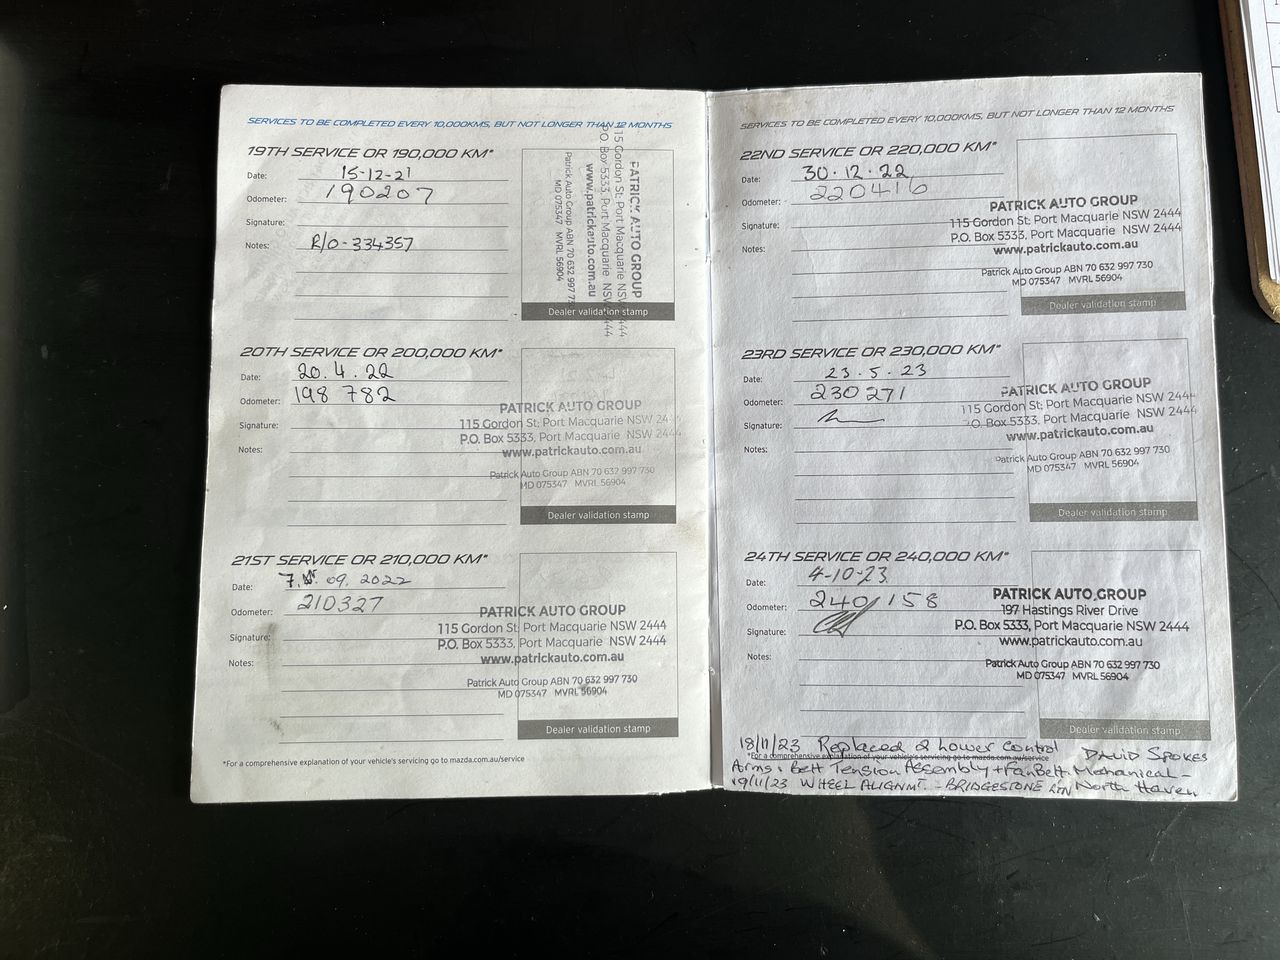 SERVICES TO BE COMPLETED EVERY 10,000KMS, BUT NOT LONGER THAN 12 MONTHS
19TH SERVICE OR 190,000 KM*
Date: 15-12-21
Odometer: 190207
Signature:
Notes: R/O-334357
PATRICK AUTO GROUP
115 Gordon St: Port Macquarie NSW 2444
P.O. Box 5333, Port Macquarie NSW 2444
www.patrickauto.com.au
Patrick Auto Group ABN 70 632 997 73
MD 075347 MVRL 56904
Dealer validation stamp
20TH SERVICE OR 200,000 KM*
Date: 20.4.22
Odometer: 198 782
Signature:
Notes:
PATRICK AUTO GROUP
115 Gordon St: Port Macquarie NSW 244
P.O. Box 5333, Port Macquarie NSW 244
www.patrickauto.com.au
Patrick Auto Group ABN 70 632 997 730
MD 075347 MVRL 56904
Dealer validation stamp
21ST SERVICE OR 210,000 KM*
Date: 7. 09. 2022
Odometer: 210327
Signature:
Notes:
PATRICK AUTO GROUP
115 Gordon St: Port Macquarie NSW 2444
P.O. Box 5333, Port Macquarie NSW 2444
www.patrickauto.com.au
Patrick Auto Group ABN 70 632 997 730
MD 075347 MVRL 56904
Dealer validation stamp
*For a comprehensive explanation of your vehicle's servicing go to mazda.com.au/service
SERVICES TO BE COMPLETED EVERY 10,000KMS, BUT NOT LONGER THAN 12 MONTHS
22ND SERVICE OR 220,000 KM*
Date: 30.12.22
Odometer: 220416
Signature:
Notes:
PATRICK AUTO GROUP
115 Gordon St: Port Macquarie NSW 2444
P.O. Box 5333, Port Macquarie NSW 2444
www.patrickauto.com.au
Patrick Auto Group ABN 70 632 997 730
MD 075347 MVRL 56904
Dealer validation stamp
23RD SERVICE OR 230,000 KM*
Date: 23.5.23
Odometer: 230271
Signature:
Notes:
PATRICK AUTO GROUP
115 Gordon St: Port Macquarie NSW 2444
P.O. Box 5333, Port Macquarie NSW 2444
www.patrickauto.com.au
Patrick Auto Group ABN 70 632 997 730
MD 075347 MVRL 56904
Dealer validation stamp
24TH SERVICE OR 240,000 KM*
Date: 4-10-23
Odometer: 240,158
Signature:
Notes:
PATRICK AUTO GROUP
197 Hastings River Drive
P.O. Box 5333, Port Macquarie NSW 2444
www.patrickauto.com.au
Patrick Auto Group ABN 70 632 997 730
MD 075347 MVRL 56904
Dealer validation stamp
18/11/23 Replaced 2 Lower Control DAVID SPOKES
*For a comprehensive explanation of your vehicle's servicing go to mazda.com.au/service
Arms, Belt Tension Assembly + Fan Belt. Mechanical -
19/11/23 WHEEL ALIGNMT. - BRIDGESTONE North Haven